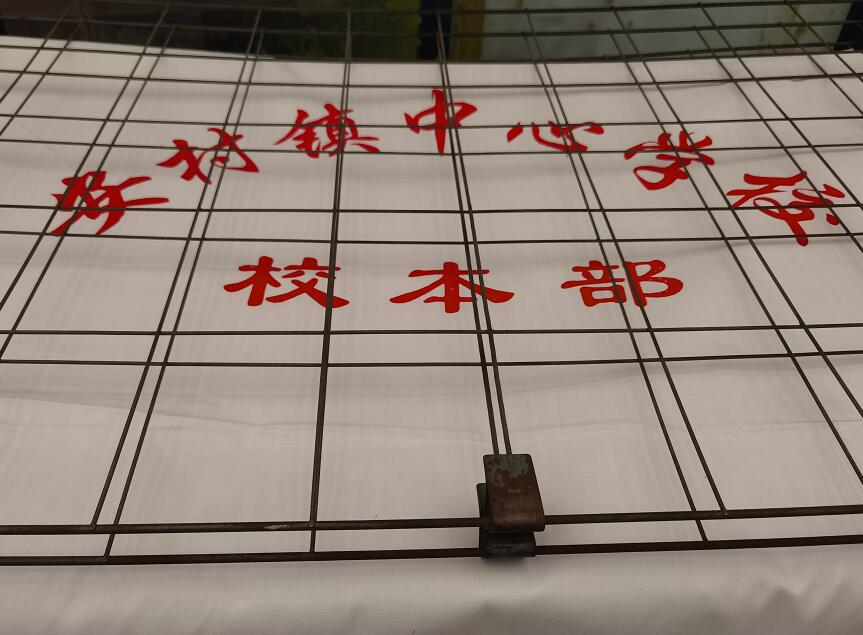 村镇中心学校
校本部